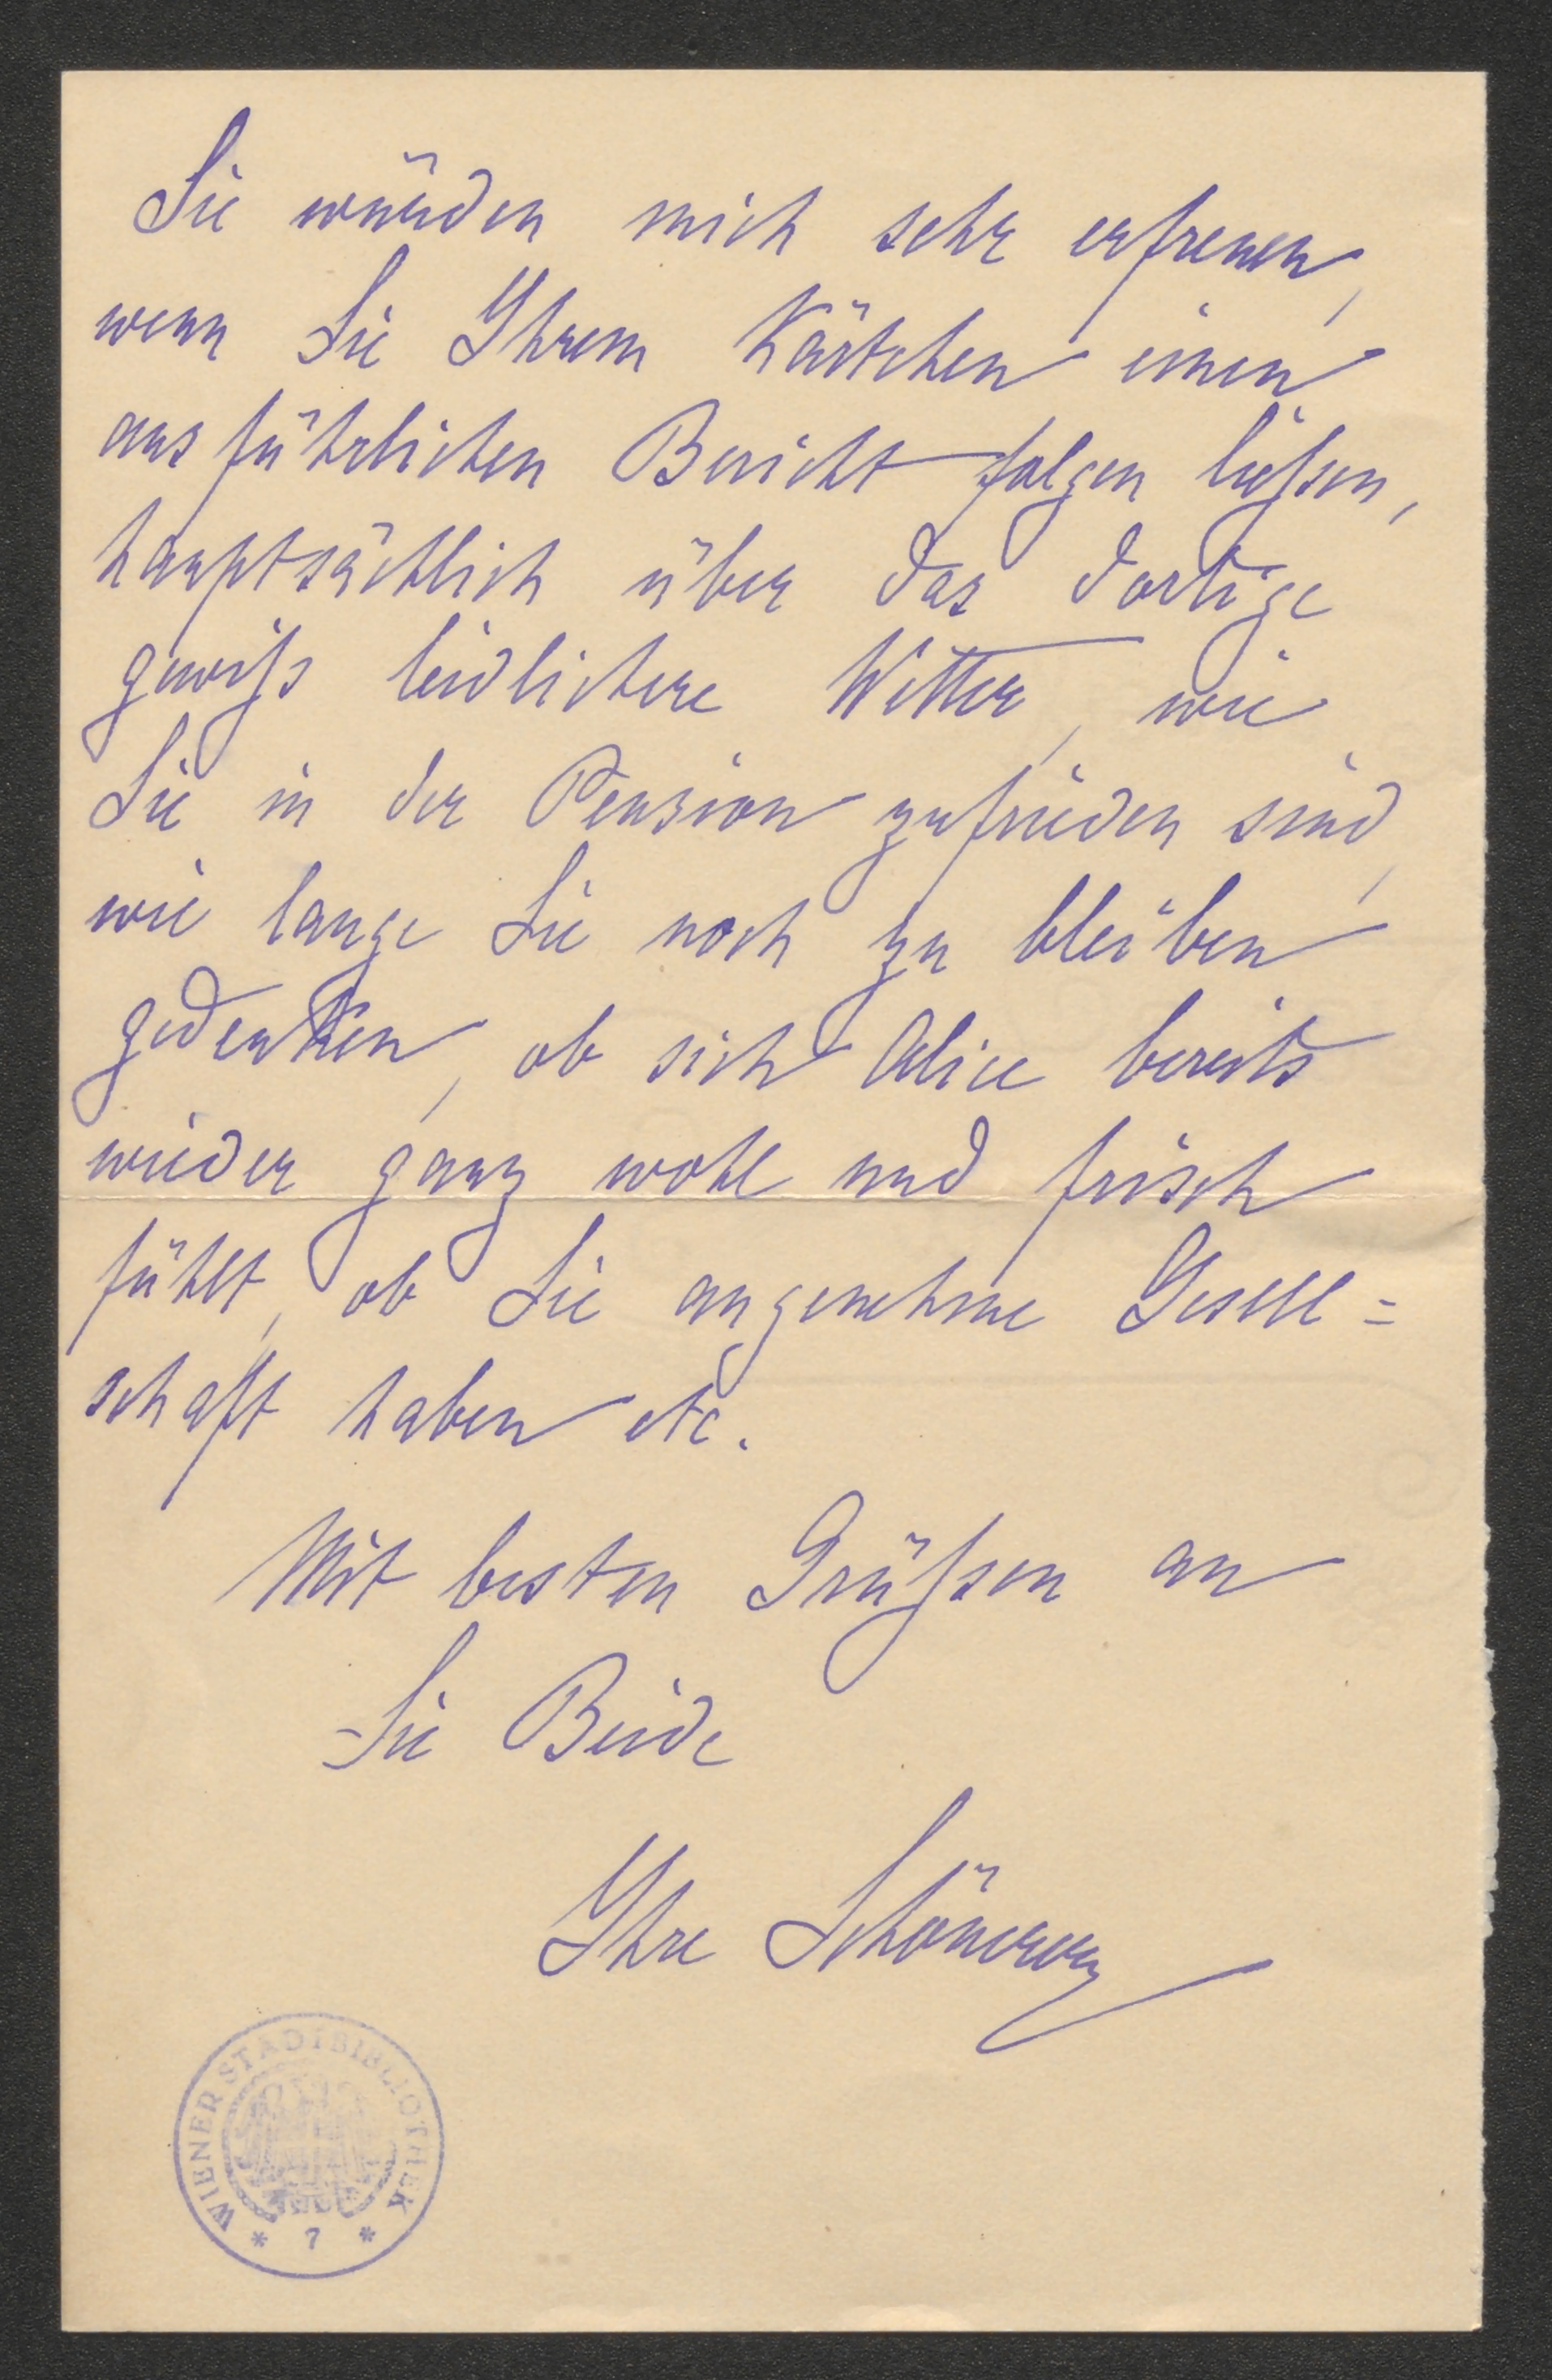 Sie würden mich sehr erfreuen,
wenn Sie Ihrem Kärtchen einen
ausführlichen Bericht folgen ließen,
hauptsächlich über das dortige
gewiß leidlichere Wetter, wie
Sie in der Pension zufrieden sind,
wie lange Sie noch zu bleiben
gedenken, ob sich Alice bereits
wieder ganz wohl und frisch
fühlt, ob Sie angenehme Gesell=
schaft haben etc.
Mit besten Grüßen an
Sie Beide
Ihre Schönerer
WIENER STADTBIBLIOTHEK
* 7 *